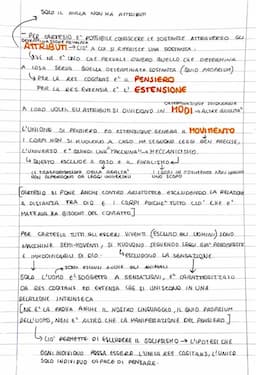 SOLO IL NULLA NON HA ATTRIBUTI
- PER CARTESIO E' POSSIBILE CONOSCERE LE SOSTANZE ATTRAVERSO GLI
ATTRIBUTI → CIO' A CUI SI RIFERISCE UNA SOSTANZA.
↳ VE NE E' UNO CHE PREVALE OVVERO QUELLO CHE DETERMINA
A COSA SERVE QUELLA DETERMINATA SOSTANZA (QUID PROPRIUM)
↳ PER LA RES COGITANS E' IL PENSIERO
PER LA RES EXTENSA E' L'ESTENSIONE
A LORO VOLTA GLI ATTRIBUTI SI DIVIDONO IN MODI →
L'UNIONE DI PENSIERO ED ESTENSIONE GENERA IL MOVIMENTO
I CORPI NON SI MUOVONO A CASO MA SEGUONO LEGGI BEN PRECISE,
L'UNIVERSO E' QUINDI UNA "MACCHINA" → MECCANICISMO.
↳ QUESTO ESCLUDE IL CASO E IL FINALISMO
LE TRASFORMAZIONI DELLA REALTA'
NON DIPENDONO DA LEGGI UNIVERSALI
UNO SCOPO
[CARTESIO SI PONE ANCHE CONTRO ARISTOTELE ESCLUDENDO LA RELAZIONE
A DISTANZA TRA DIO E I CORPI POICHE' TUTTO CIO' CHE E'
MATERIA HA BISOGNO DEL CONTATTO]
PER CARTESIO TUTTI GLI ESSERI VIVENTI (ESCLUSO GLI UOMINI) SONO
MACCHINE SEMI-MOVENTI, SI MUOVONO SEGUENDO LEGGI GIA' PREDISPOSTE
E IMMODIFICABILI DI DIO. → ESCLUDONO LA SENSAZIONE
SONO ESCLUSI ANCHE GLI ANIMALI
SOLO L'UOMO E' SOGGETTO A SENSAZIONI, E' CARATTERIZZATO
DA RES COGITANS ED EXTENSA CHE SI UNISCONO IN UNA
RELAZIONE INTRINSECA
[NE E' LA PROVA ANCHE IL NOSTRO LINGUAGGIO, IL QUID PROPRIUM
DELL'UOMO, NON E' ALTRO CHE LA MANIFESTAZIONE DEL PENSIERO]
↳ CIO' PERMETTE DI ESCLUDERE IL SOLIPSISMO → L'IPOTESI CHE
OGNI INDIVIDUO POSSA ESSERE L'UNICA RES COGITANS, L'UNICO
SOLO INDIVIDUO CAPACE DI PENSARE.